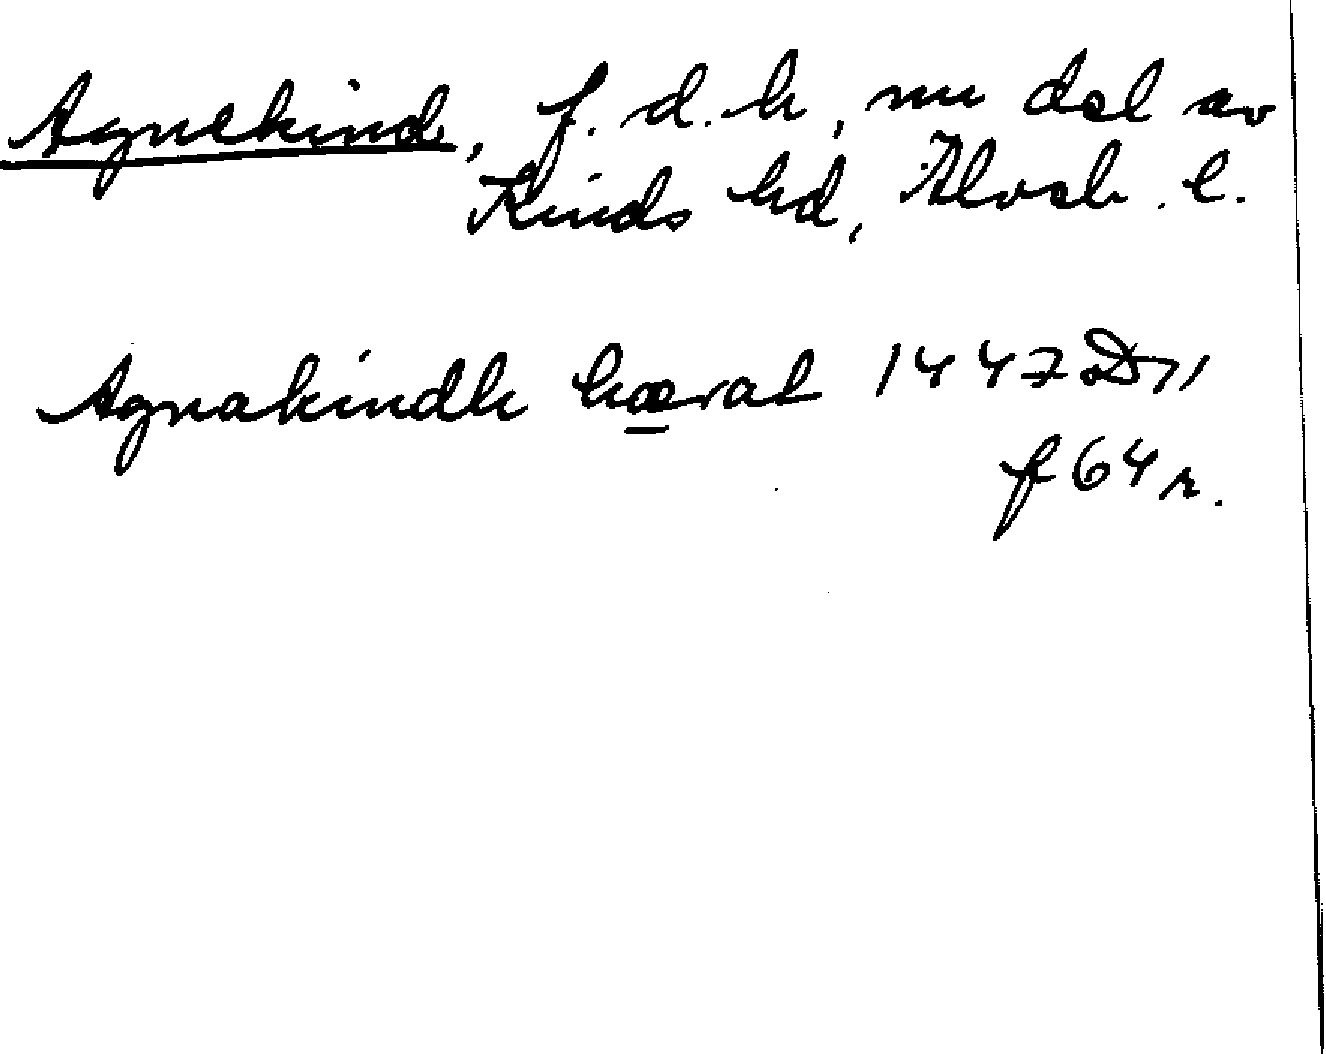 Agnekind, f. d. h, nu del av
Kinds hd, Älvsb. l.
Agnakindh hærat 1447 D 11
f 64 r.